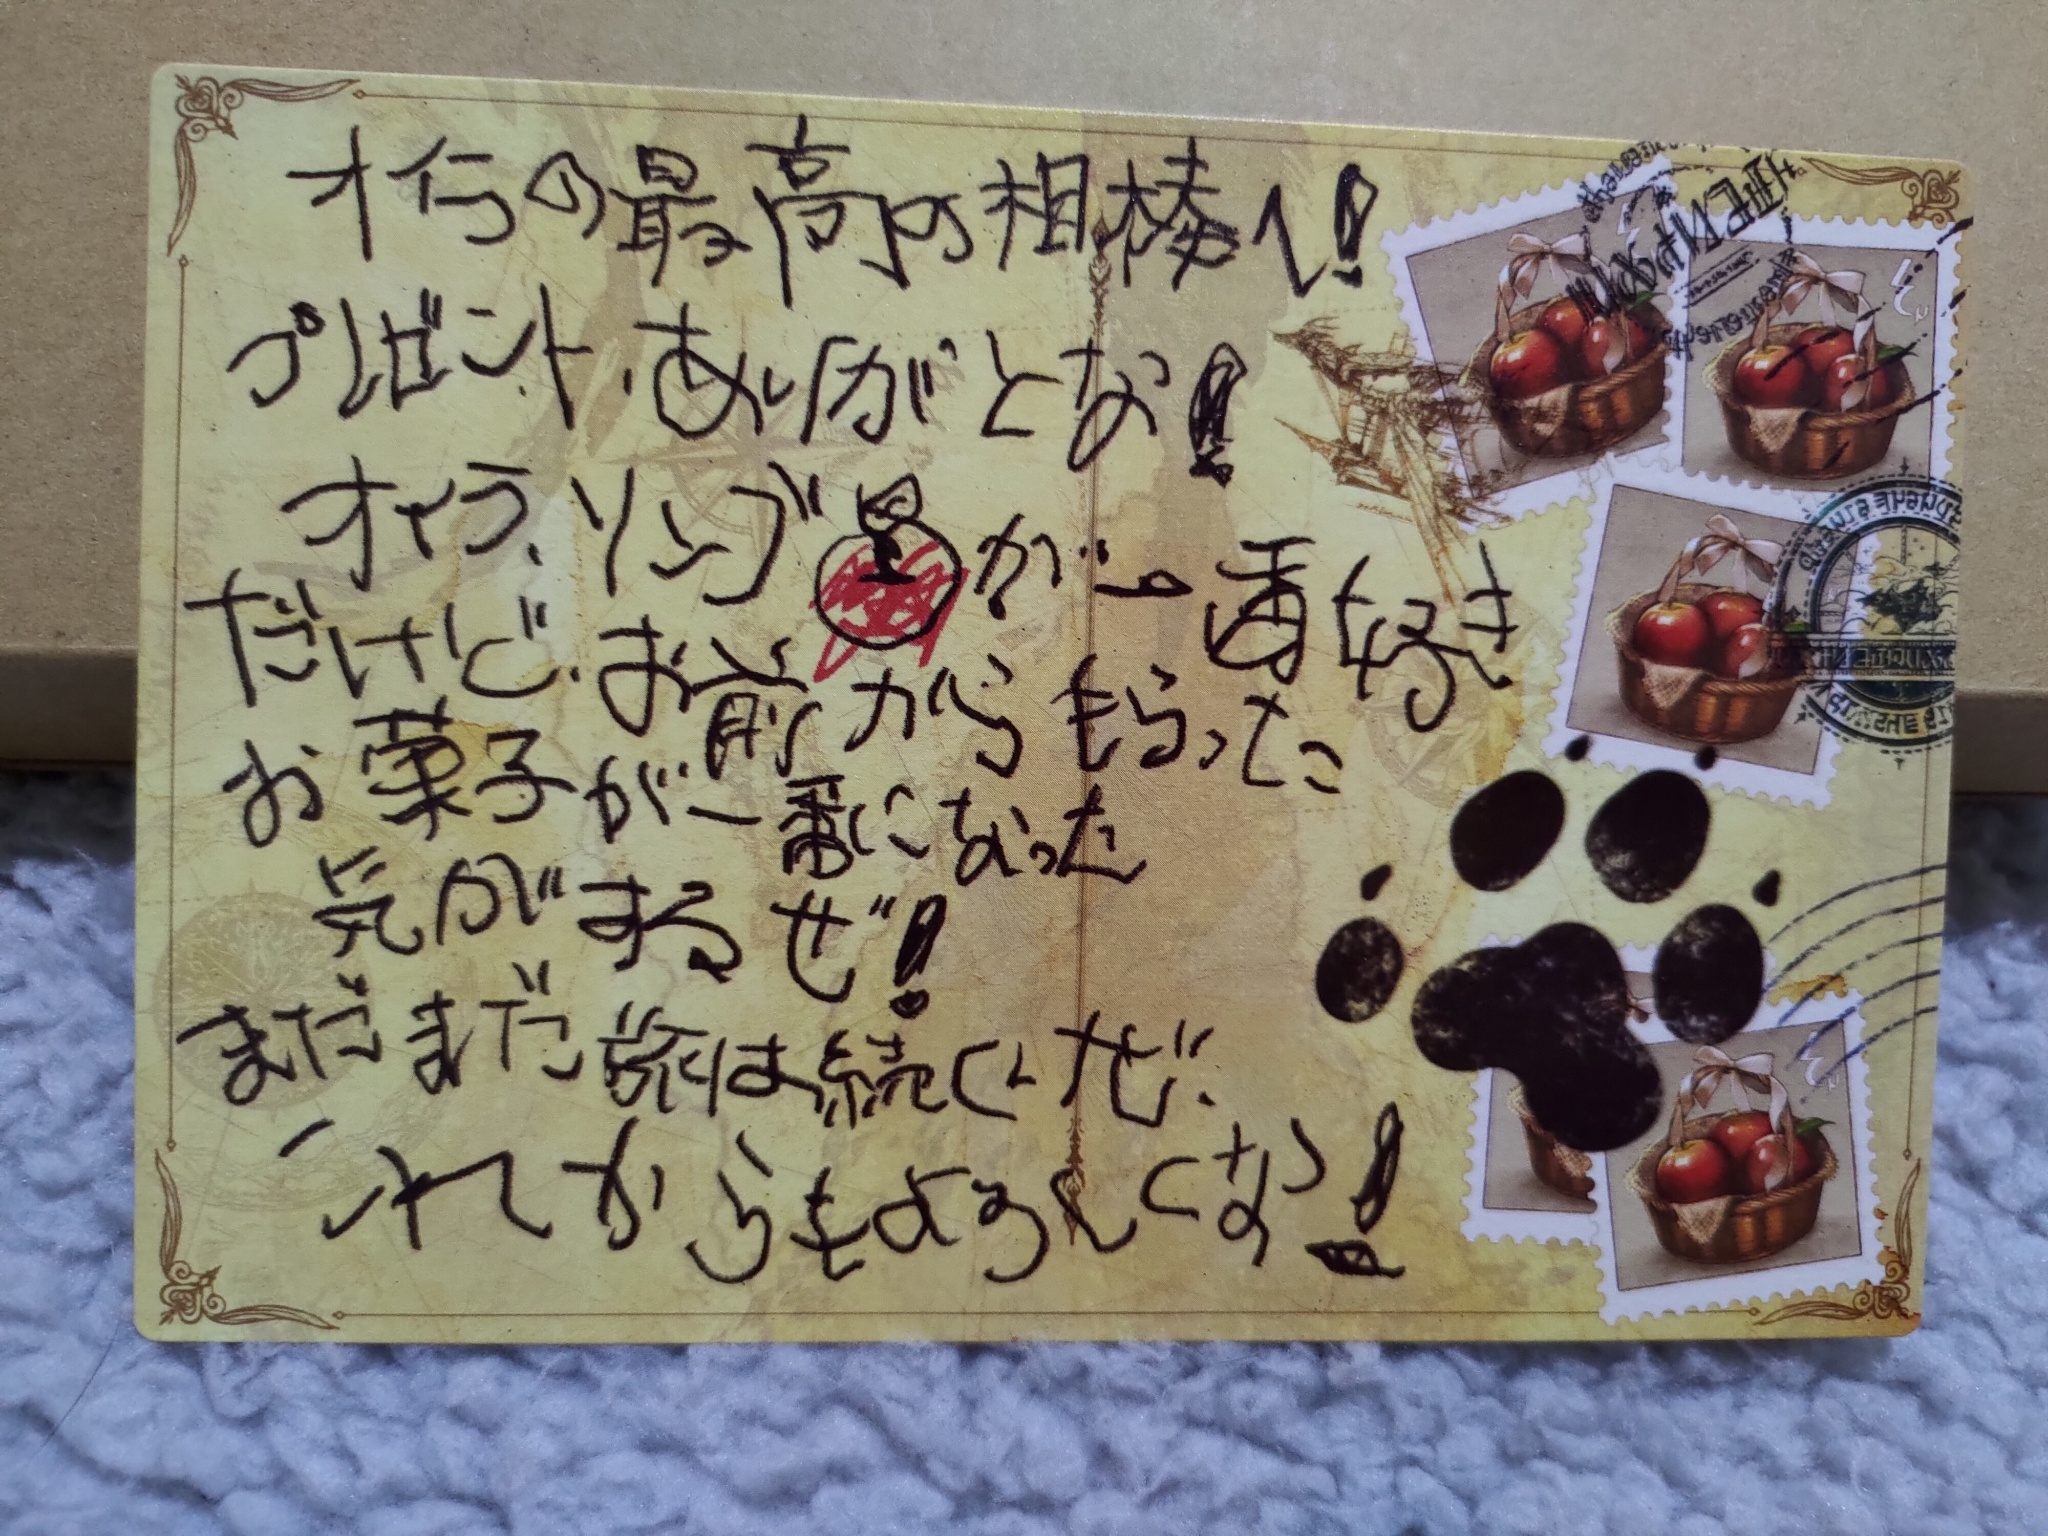 オイラの最高の相棒へ!
プレゼント、ありがとな!
オイラ、リンゴが一番好き
だけど、お前からもらった
お菓子が一番になった
気がするぜ!
まだまだ旅は続くぜ、
これからもよろしくなっ!